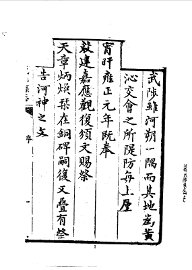 武陟雖河朔一隅而其地當黃
沁交會之所隄防每上廑
宵旰雍正元年既奉
敕建嘉應觀復頒文賜祭
天章炳煥泐在銅碑嗣復又疊有祭
告河神之文